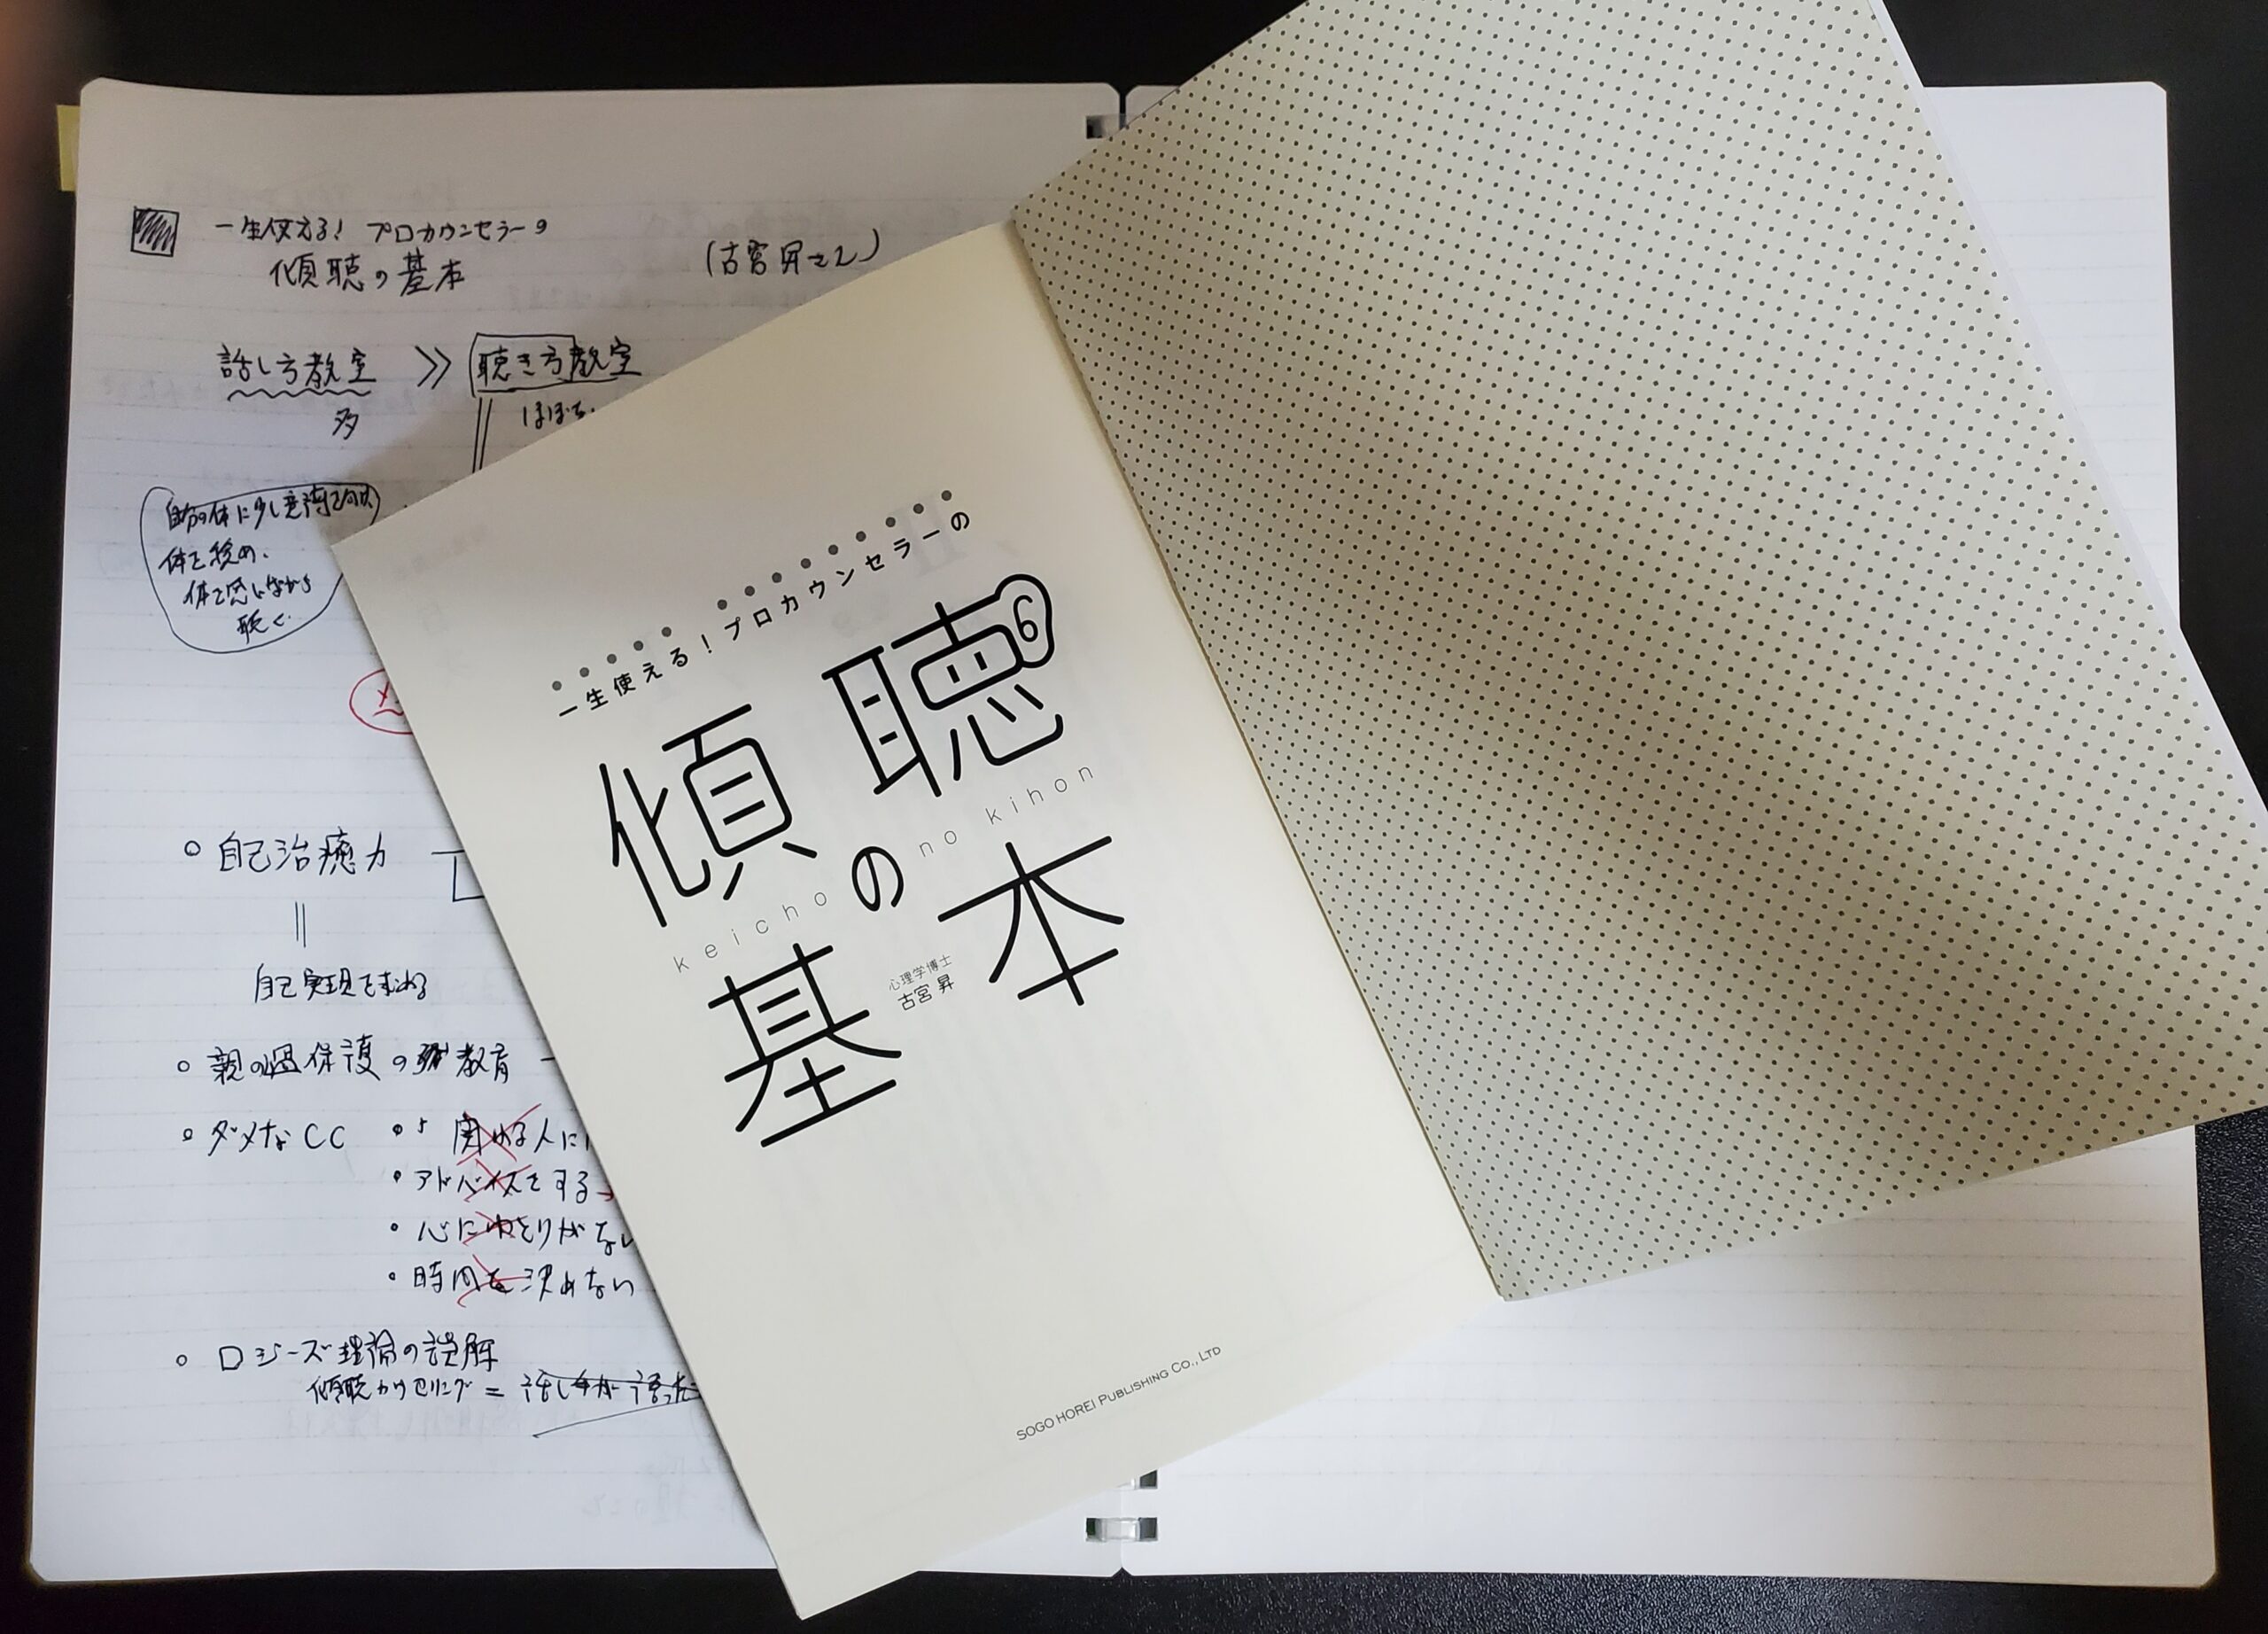 一生使える！ プロカウンセラーの
傾聴の基本
(古宮昇さん)
話し方教室 ≫ 聴き方教室
多
ほぼ
自分の体に少し意識を向け
体を緩め、
体を感じながら
聴く
○ 自己治癒力
||
自己実現を求める
○ 親の過保護の 教育 ー
○ ダメなCC
・アドバイスをする
・心にゆとりがない
・時間を決めない
○ ロジーズ理論の誤解
傾聴カウンセリング = 話し手が
一生使える！プロカウンセラーの
傾聴
keicho の no kihon
基本
心理学博士
古宮 昇
SOGO HOREI PUBLISHING CO., LTD